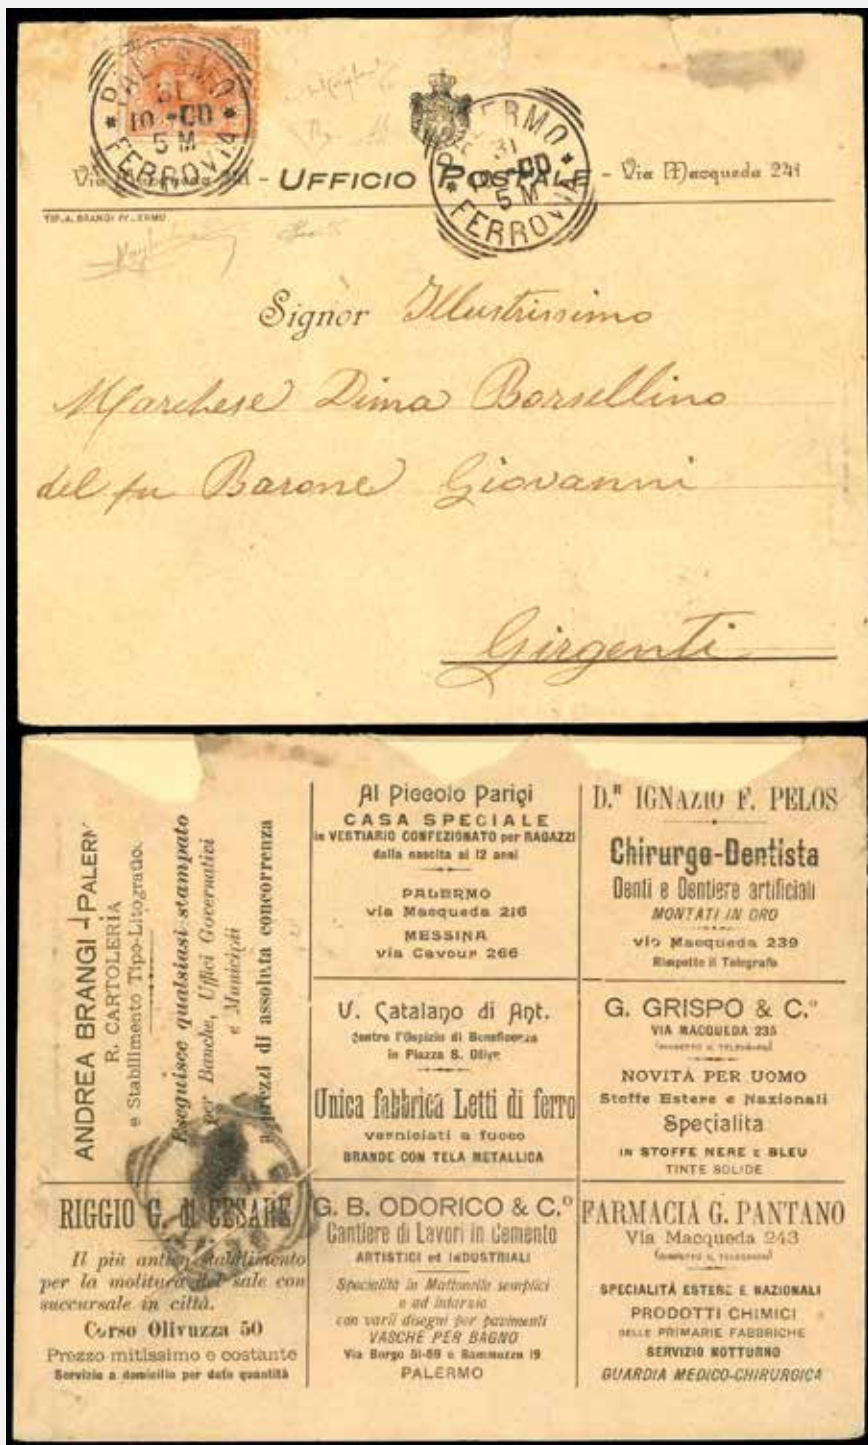 PALERMO
31
10 - 00
5 M
FERROVIA
PALERMO
31
10 - 00
5 M
FERROVIA
Via Macqueda 241 - UFFICIO POSTALE - Via Macqueda 241
TIP. A. BRANGI PALERMO
Signor Illustrissimo
Marchese Dima Borsellino
del fu Barone Giovanni
Girgenti
ANDREA BRANGI - PALERM
R. CARTOLERIA
e Stabilimento Tipo-Litografico.
Eseguisce qualsiasi stampato
per Banche, Uffici Governativi
e Municipii
a prezzi di assoluta concorrenza
Al Piccolo Parigi
CASA SPECIALE
in VESTIARIO CONFEZIONATO per RAGAZZI
dalla nascita ai 12 anni
PALERMO
via Macqueda 216
MESSINA
via Cavour 266
D.R IGNAZIO F. PELOS
Chirurgo-Dentista
Denti e Dentiere artificiali
MONTATI IN ORO
via Macqueda 239
Rimpetto il Telegrafo
V. Catalano di Ant.
dentro l'Ospizio di Beneficenza
in Piazza S. Oliva
Unica fabbrica Letti di ferro
verniciati a fuoco
BRANDE CON TELA METALLICA
G. GRISPO & C.º
VIA MACQUEDA 235
(RIMPETTO IL TELEGRAFO)
NOVITÀ PER UOMO
Stoffe Estere e Nazionali
Specialita
IN STOFFE NERE E BLEU
TINTE SOLIDE
RIGGIO G. di CESARE
Il più antico stabilimento
per la molitura del sale con
succursale in città.
Corso Olivuzza 50
Prezzo mitissimo e costante
Servizio a domicilio per date quantità
G. B. ODORICO & C.º
Cantiere di Lavori in Cemento
ARTISTICI ed INDUSTRIALI
Specialità in Mattonelle semplici
e ad intarsio
con varii disegni per pavimenti
VASCHE PER BAGNO
Via Borgo 51-59 e Sammuzzo 19
PALERMO
FARMACIA G. PANTANO
Via Macqueda 243
(RIMPETTO IL TELEGRAFO)
SPECIALITÀ ESTERE E NAZIONALI
PRODOTTI CHIMICI
DELLE PRIMARIE FABBRICHE
SERVIZIO NOTTURNO
GUARDIA MEDICO-CHIRURGICA